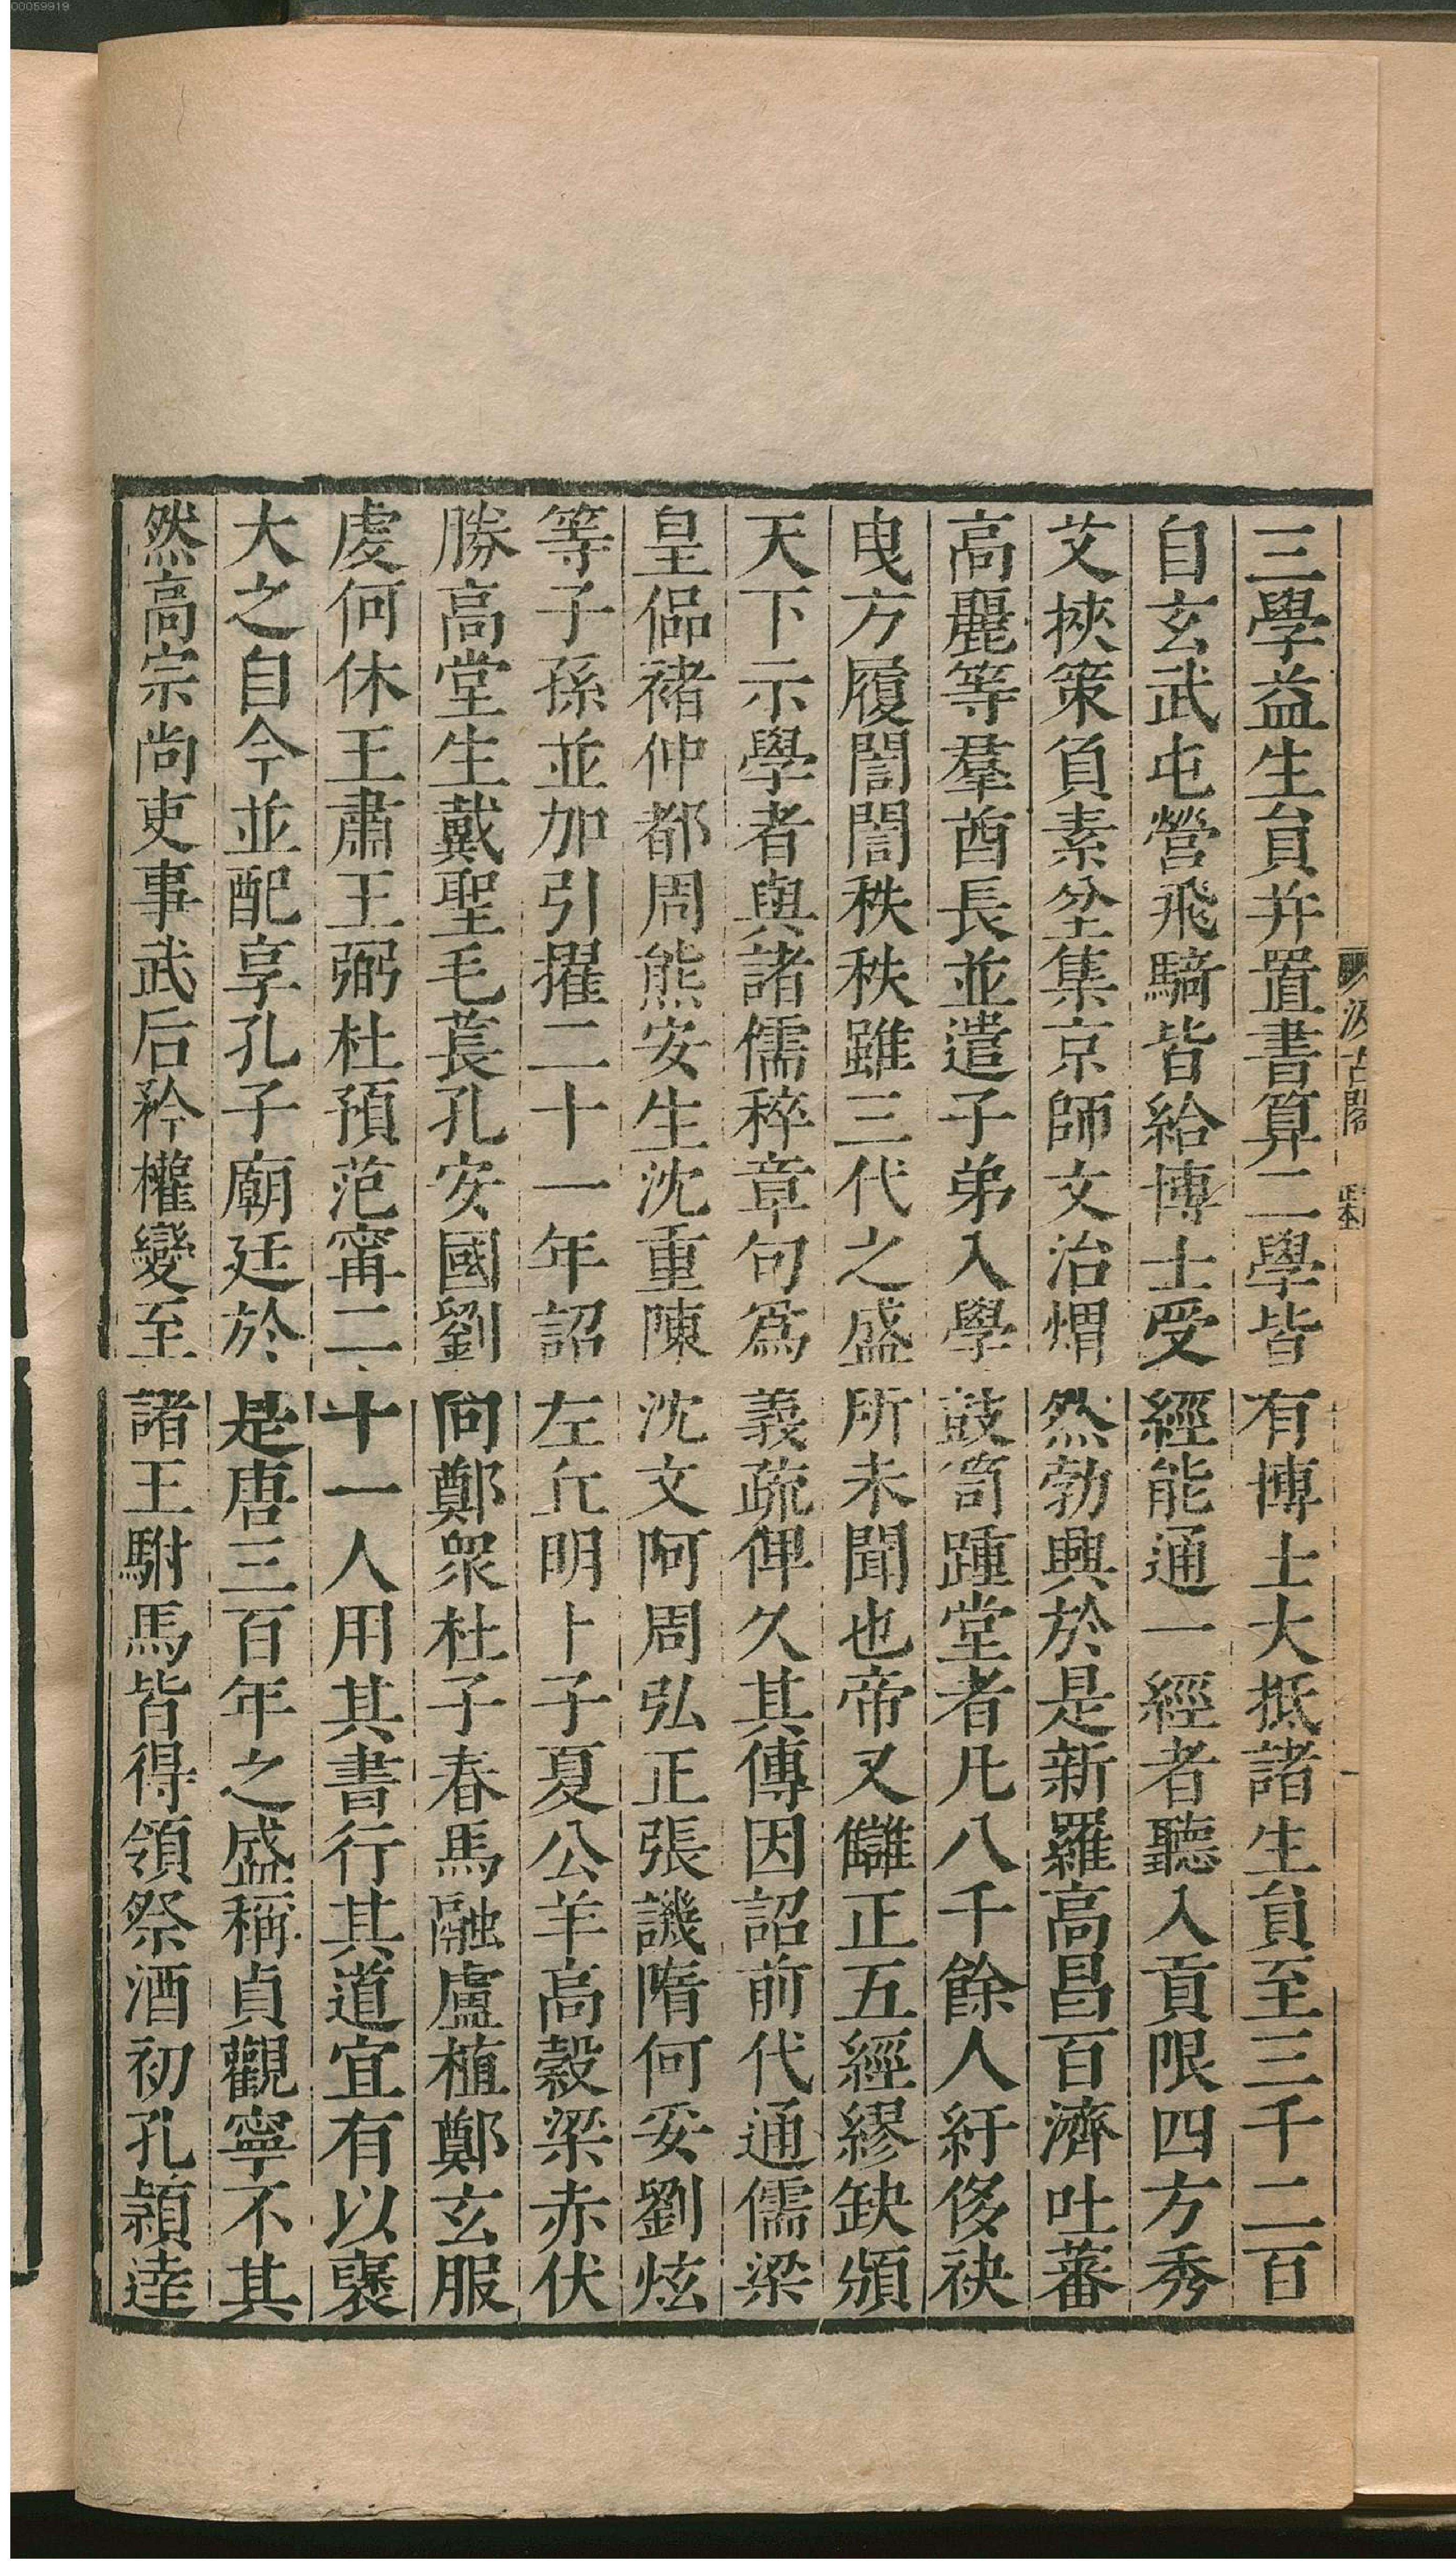 00059919
汲古閣
三學益生貟并置書算二學皆有博士大抵諸生貟至三千二百
自玄武屯營飛騎皆給博士受經能通一經者聽入貢限四方秀
艾挾策負素坌集京師文治煟然勃興於是新羅高昌百濟吐蕃
高麗等羣酋長並遣子弟入學鼓笥踵堂者凡八千餘人紆侈袂
曳方履誾誾秩秩雖三代之盛所未聞也帝又讎正五經繆缺頒
天下示學者與諸儒稡章句爲義疏俾久其傳因詔前代通儒梁
皇偘褚仲都周熊安生沈重陳沈文阿周弘正張譏隋何妥劉炫
等子孫並加引擢二十一年詔左丘明卜子夏公羊高穀梁赤伏
勝高堂生戴聖毛萇孔安國劉向鄭衆杜子春馬融盧植鄭玄服
虔何休王肅王弼杜預范甯二十一人用其書行其道宜有以襃
大之自今並配享孔子廟廷於是唐三百年之盛稱貞觀寧不其
然高宗尚吏事武后矜權變至諸王駙馬皆得領祭酒初孔穎達